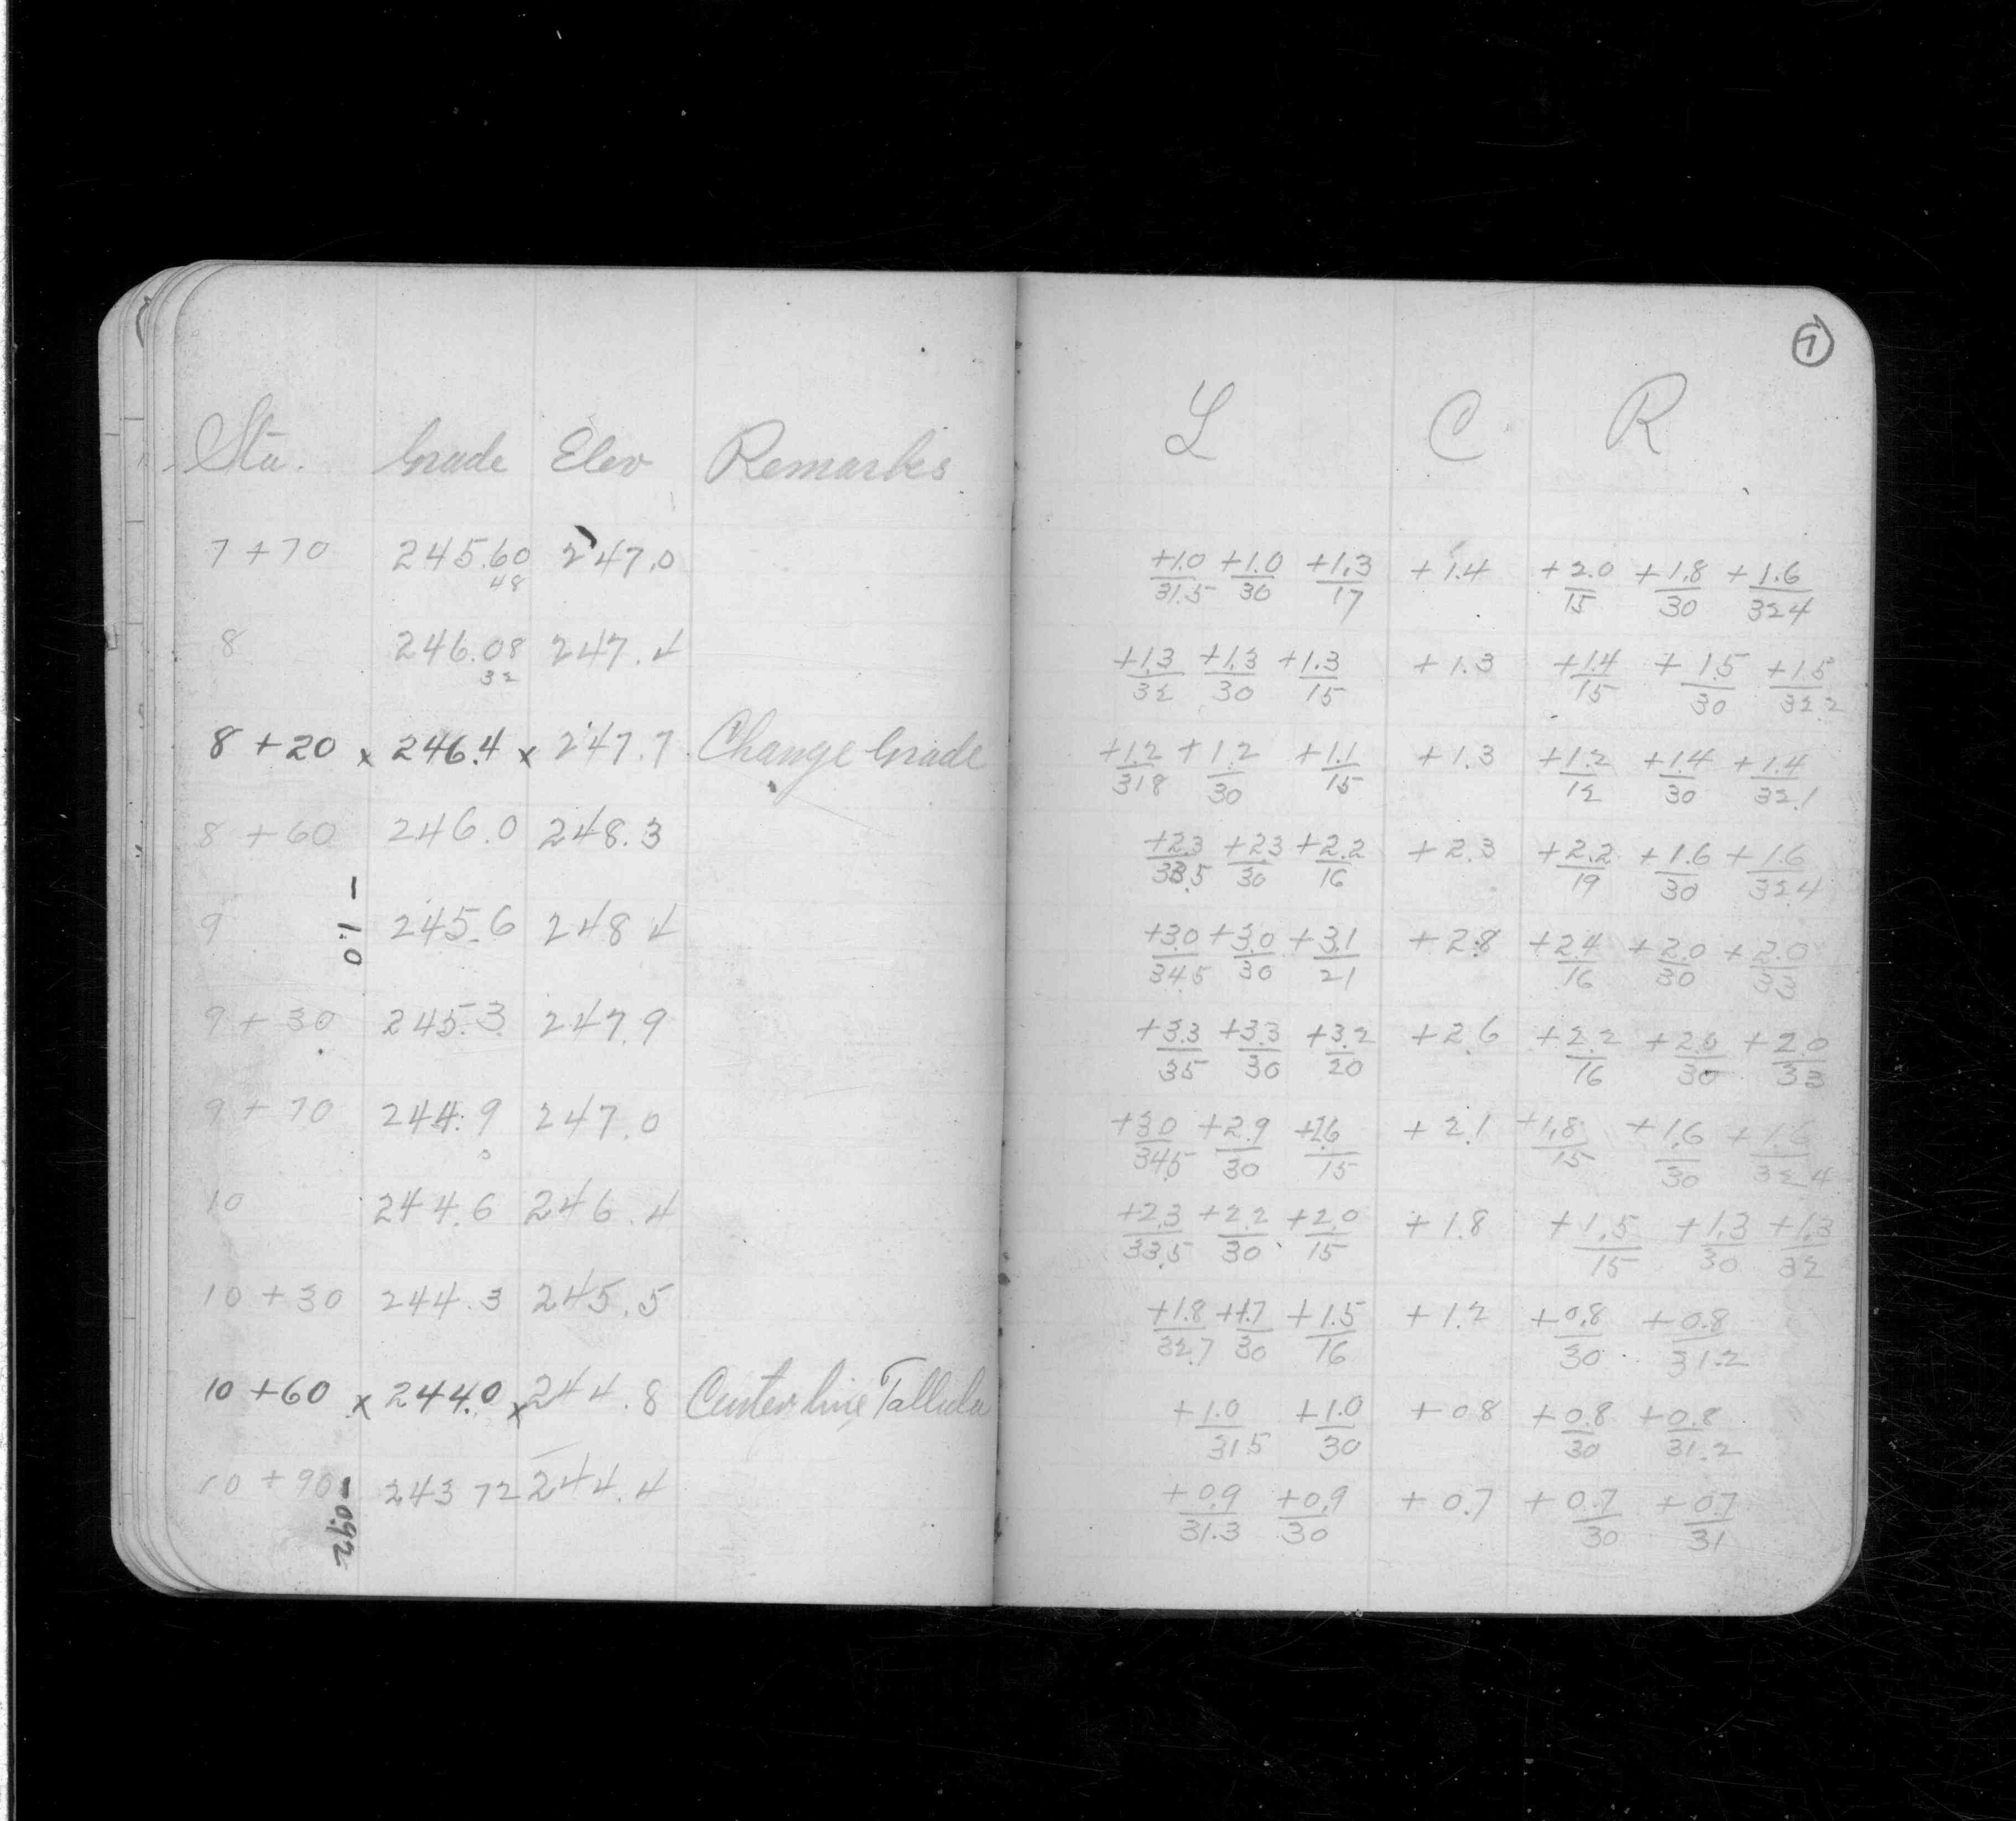 7
Sta. Grade Elev Remarks L C R
7 + 70 245.60 247.0 +1.0/31.5 +1.0/30 +1.3/17 +1.4 +2.0/15 +1.8/30 +1.6/32.4
48
8 246.08 247.4 +1.3/32 +1.3/30 +1.3/15 +1.3 +1.4/15 +1.5/30 +1.5/32.2
32
8 + 20 x 246.4 x 247.7 Change Grade +1.2/318 +1.2/30 +1.1/15 +1.3 +1.2/12 +1.4/30 +1.4/32.1
8 + 60 246.0 248.3 +2.3/33.5 +2.3/30 +2.2/16 +2.3 +2.2/19 +1.6/30 +1.6/32.4
- 1.0
9 245.6 248.4 +3.0/34.5 +3.0/30 +3.1/21 +2.8 +2.4/16 +2.0/30 +2.0/33
9 + 30 245.3 247.9 +3.3/35 +3.3/30 +3.2/20 +2.6 +2.2/16 +2.0/30 +2.0/33
9 + 70 244.9 247.0 +3.0/34.5 +2.9/30 +2.6/15 +2.1 +1.8/15 +1.6/30 +1.6/32.4
10 244.6 246.4 +2.3/33.5 +2.2/30 +2.0/15 +1.8 +1.5/15 +1.3/30 +1.3/32
10 + 30 244.3 245.5 +1.8/32.7 +1.7/30 +1.5/16 +1.2 +0.8/30 +0.8/31.2
10 + 60 x 244.0 x 244.8 Center line Tallula +1.0/31.5 +1.0/30 +0.8 +0.8/30 +0.8/31.2
10 + 90 243 72 244.4 +0.9/31.3 +0.9/30 +0.7 +0.7/30 +0.7/31